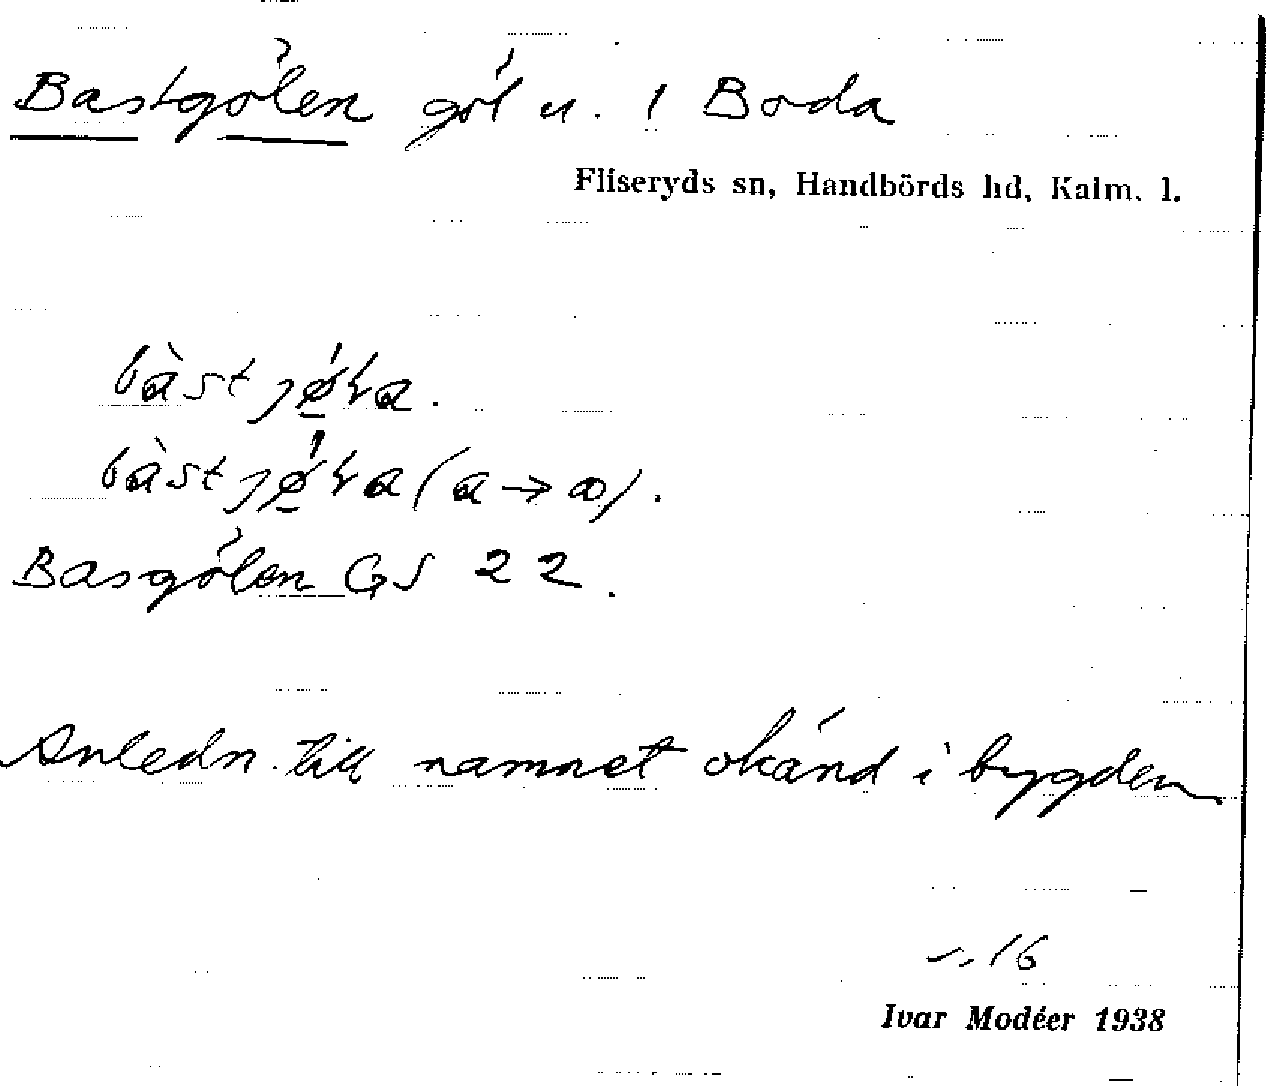 Bastgölen göl n. 1 Boda
Fliseryds sn, Handbörds hd, Kalm. l.
Basgölen GS 22.
Anledn. till namnet okänd i bygden
s. 16
Ivar Modéer 1938